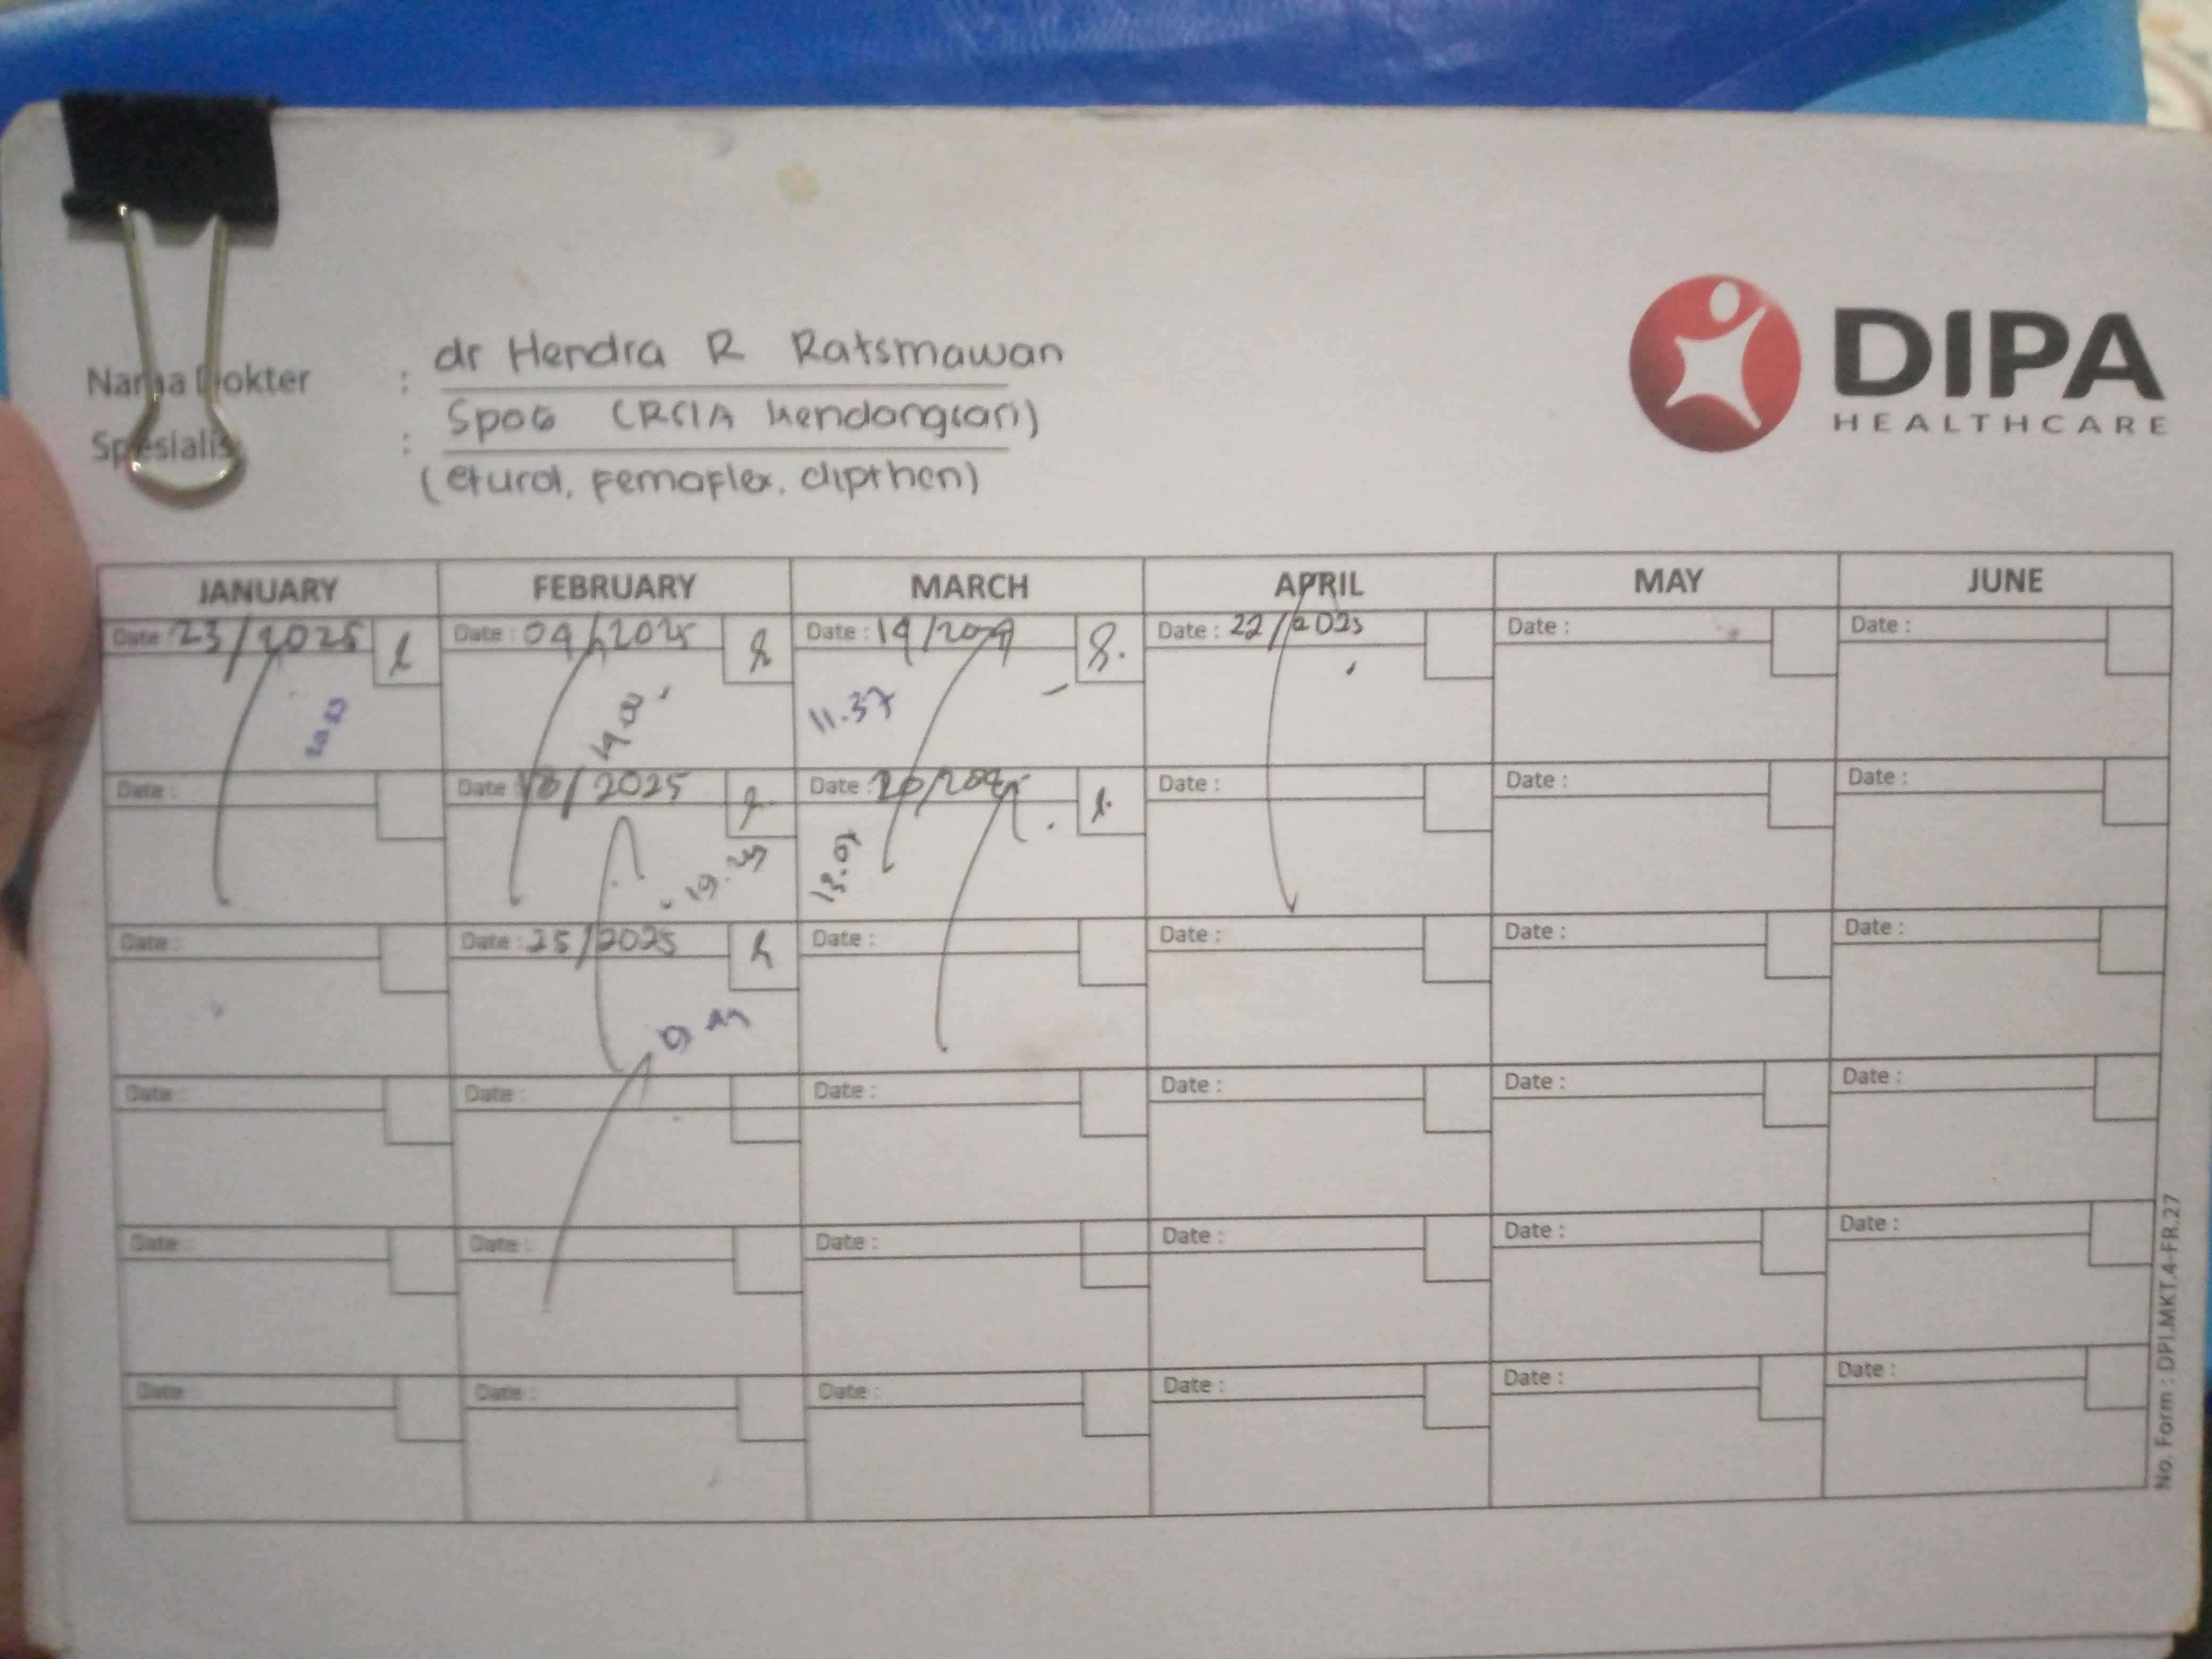 DIPA
HEALTHCARE
Nama Dokter : dr Hendra R Ratsmawan
Spesialis : SpOG (RSIA Kendangsari)
(eturol, femaplex, dipthen)
JANUARY FEBRUARY MARCH APRIL MAY JUNE
Date : 23/2025 Date : 04/2025 Date : 14/ Date : 22/2025 Date : Date :
14.00 11.37
Date : Date : 18/2025 Date : 20/ Date : Date : Date :
13.07
Date : Date : 25/2025 Date : Date : Date : Date :
Date : Date : Date : Date : Date : Date :
Date : Date : Date : Date : Date : Date :
Date : Date : Date : Date : Date : Date :
No. Form : DPI.MKT.4-FR.27